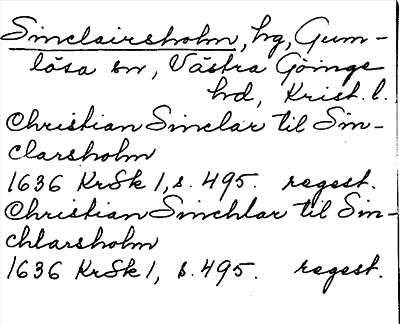 Sinclairsholm, hg, Gum-
lösa sn, Västra Göinge
hd, Krist. l.
Christian Sinclar til Sin-
clarsholm
1636 KrSk 1, s. 495. regest.
Christian Sinchlar til Sin-
chlarsholm
1636 KrSk 1, s. 495. regest.